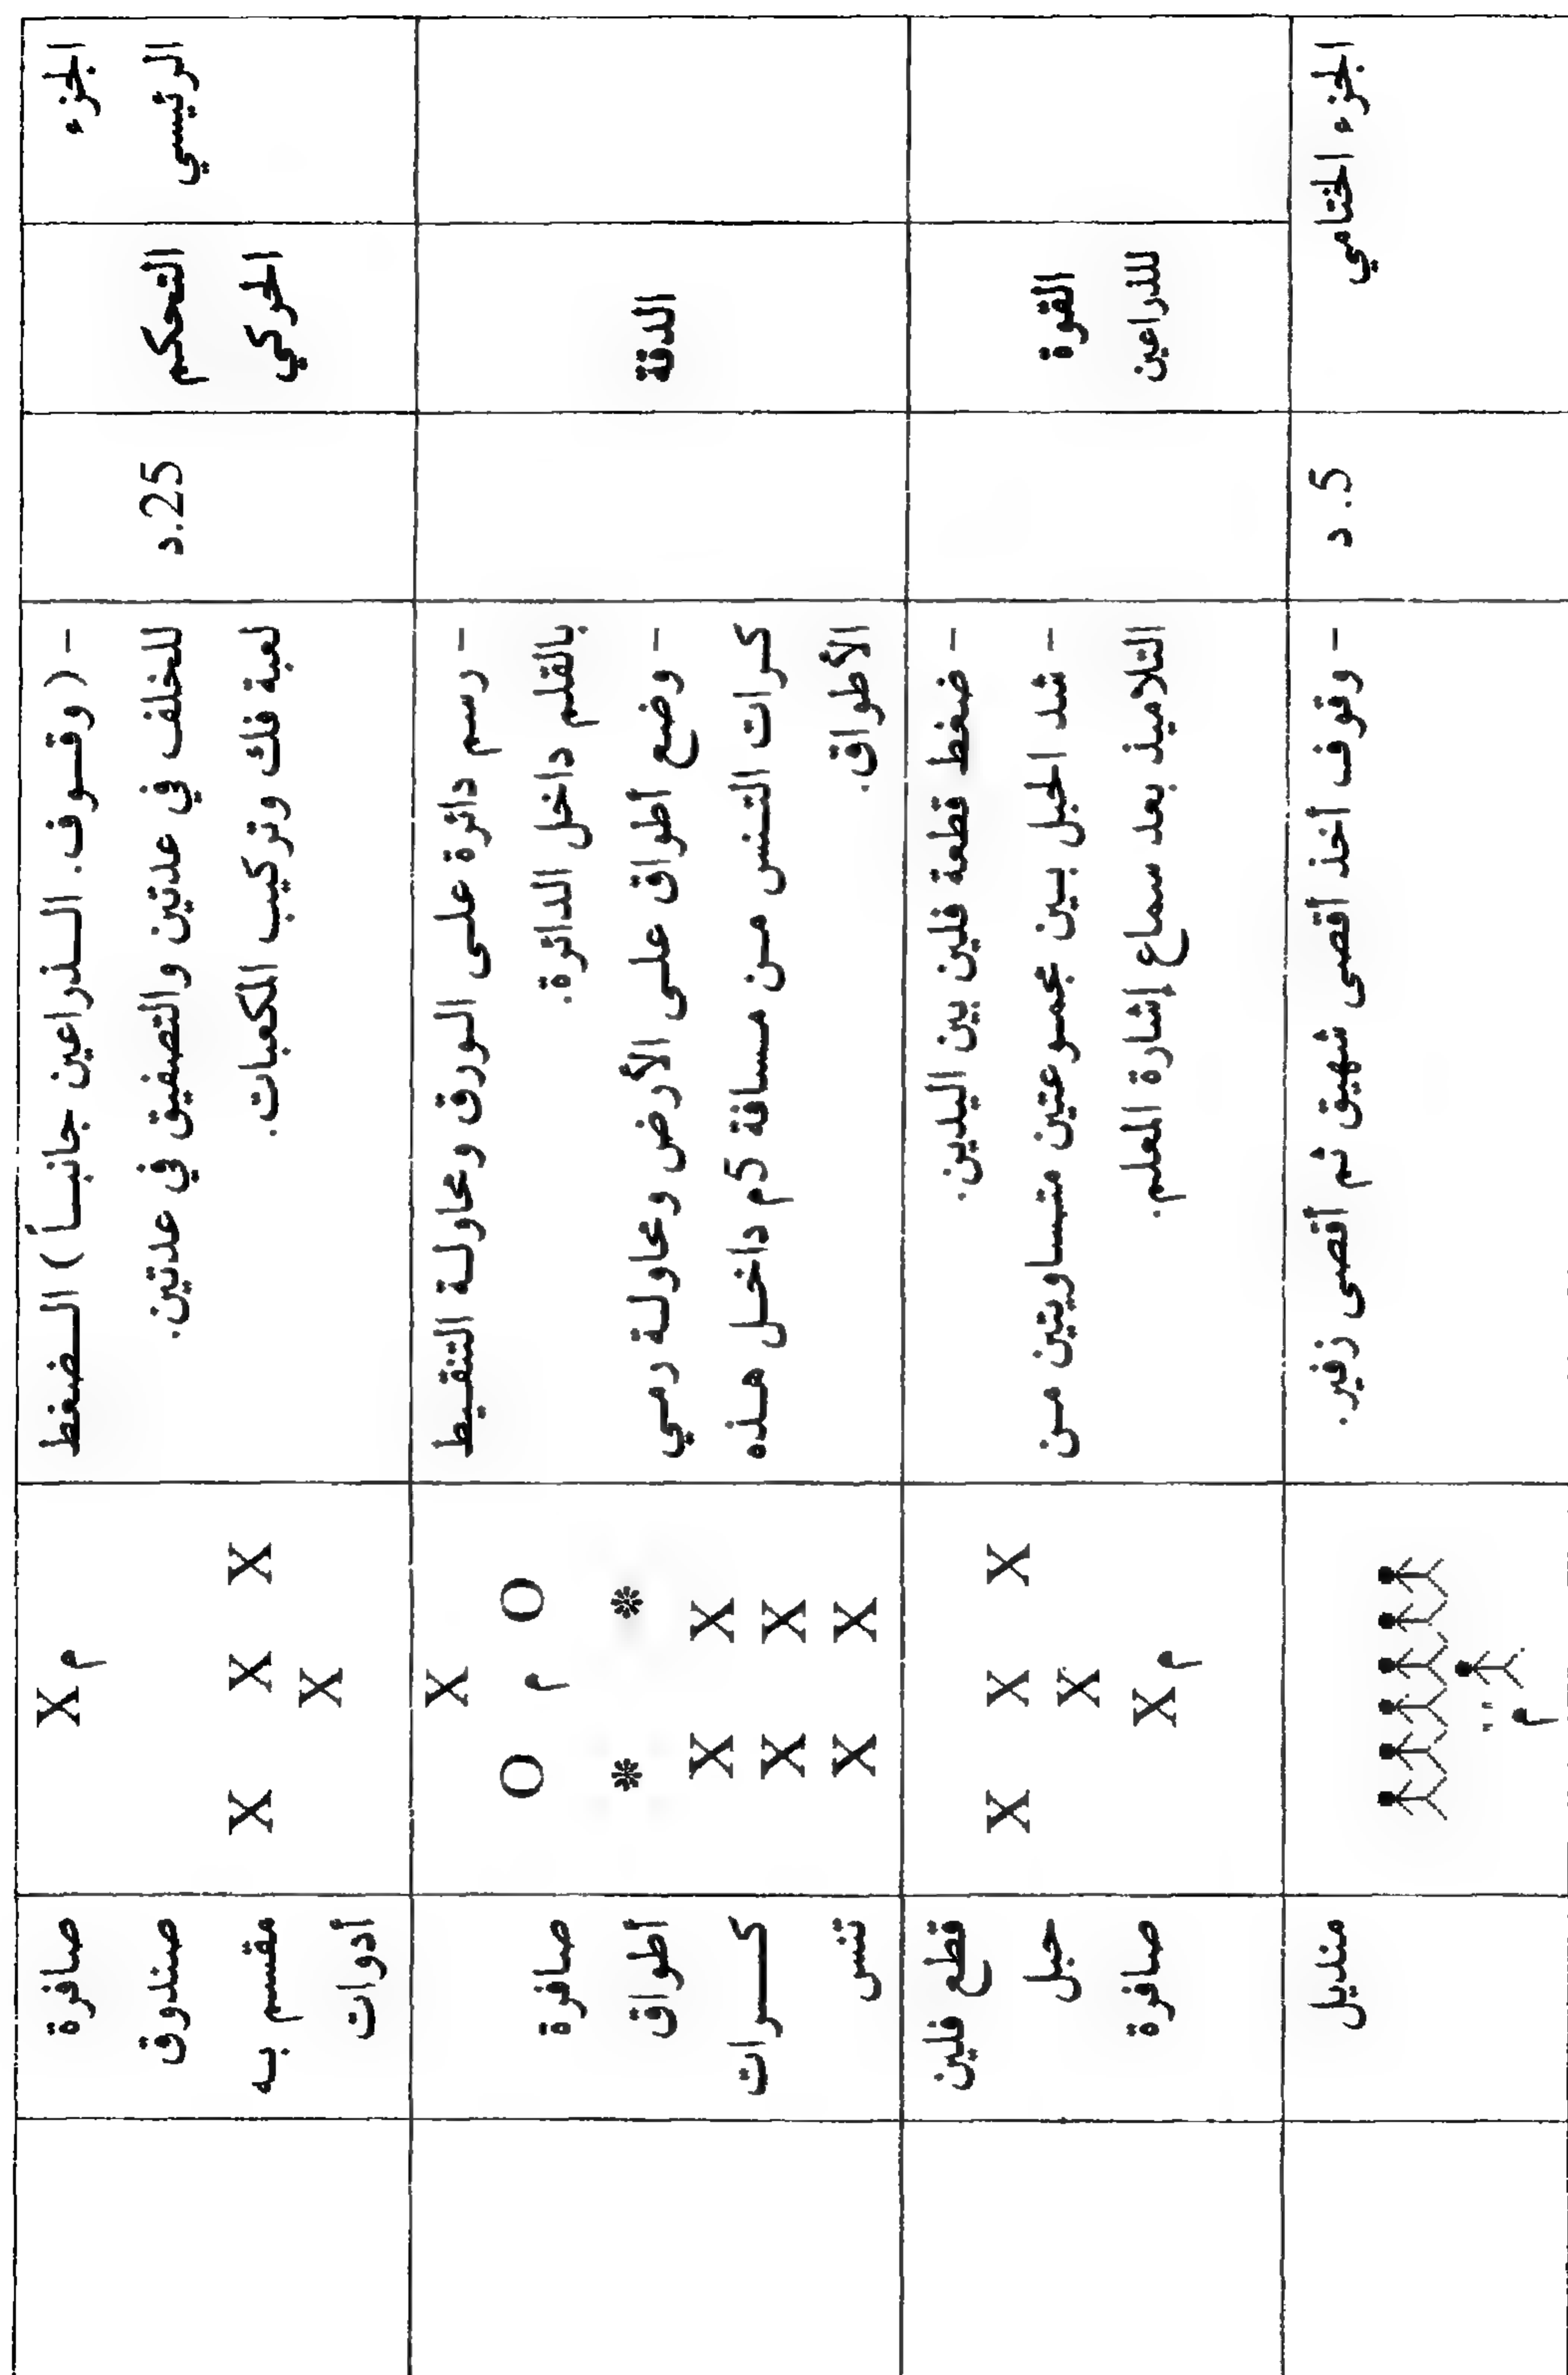 الجزء
الرئيسي
التحكم
الحركي
25.د
- (وقوف. الذراعين جانباً) الضغط
للخلف في عدتين والتصفيق في عدتين.
لعبة فك وتركيب المكعبات.
X م
X X X
X
صافرة
صندوق
مقسم به
أدوات
الدقة
- رسم دائرة على الورق ومحاولة التنقيط
بالقلم داخل الدائرة.
- وضع أطواق على الأرض ومحاولة رمي
كرات التنس من مسافة 5م داخل هذه
الأطواق.
X
O م O
* *
X X
X X
X X
صافرة
أطواق
كرات
تنس
القوة
للذراعين
- ضغط قطعة فلين بين اليدين.
- شد الحبل بين مجموعتين متساويتين من
التلاميذ بعد سماع إشارة المعلم.
X X X
X
X م
قطع فلين
حبل
صافرة
الجزء الختامي
5. د
- وقوف أخذ أقصى شهيق ثم أقصى زفير.
م
منديل